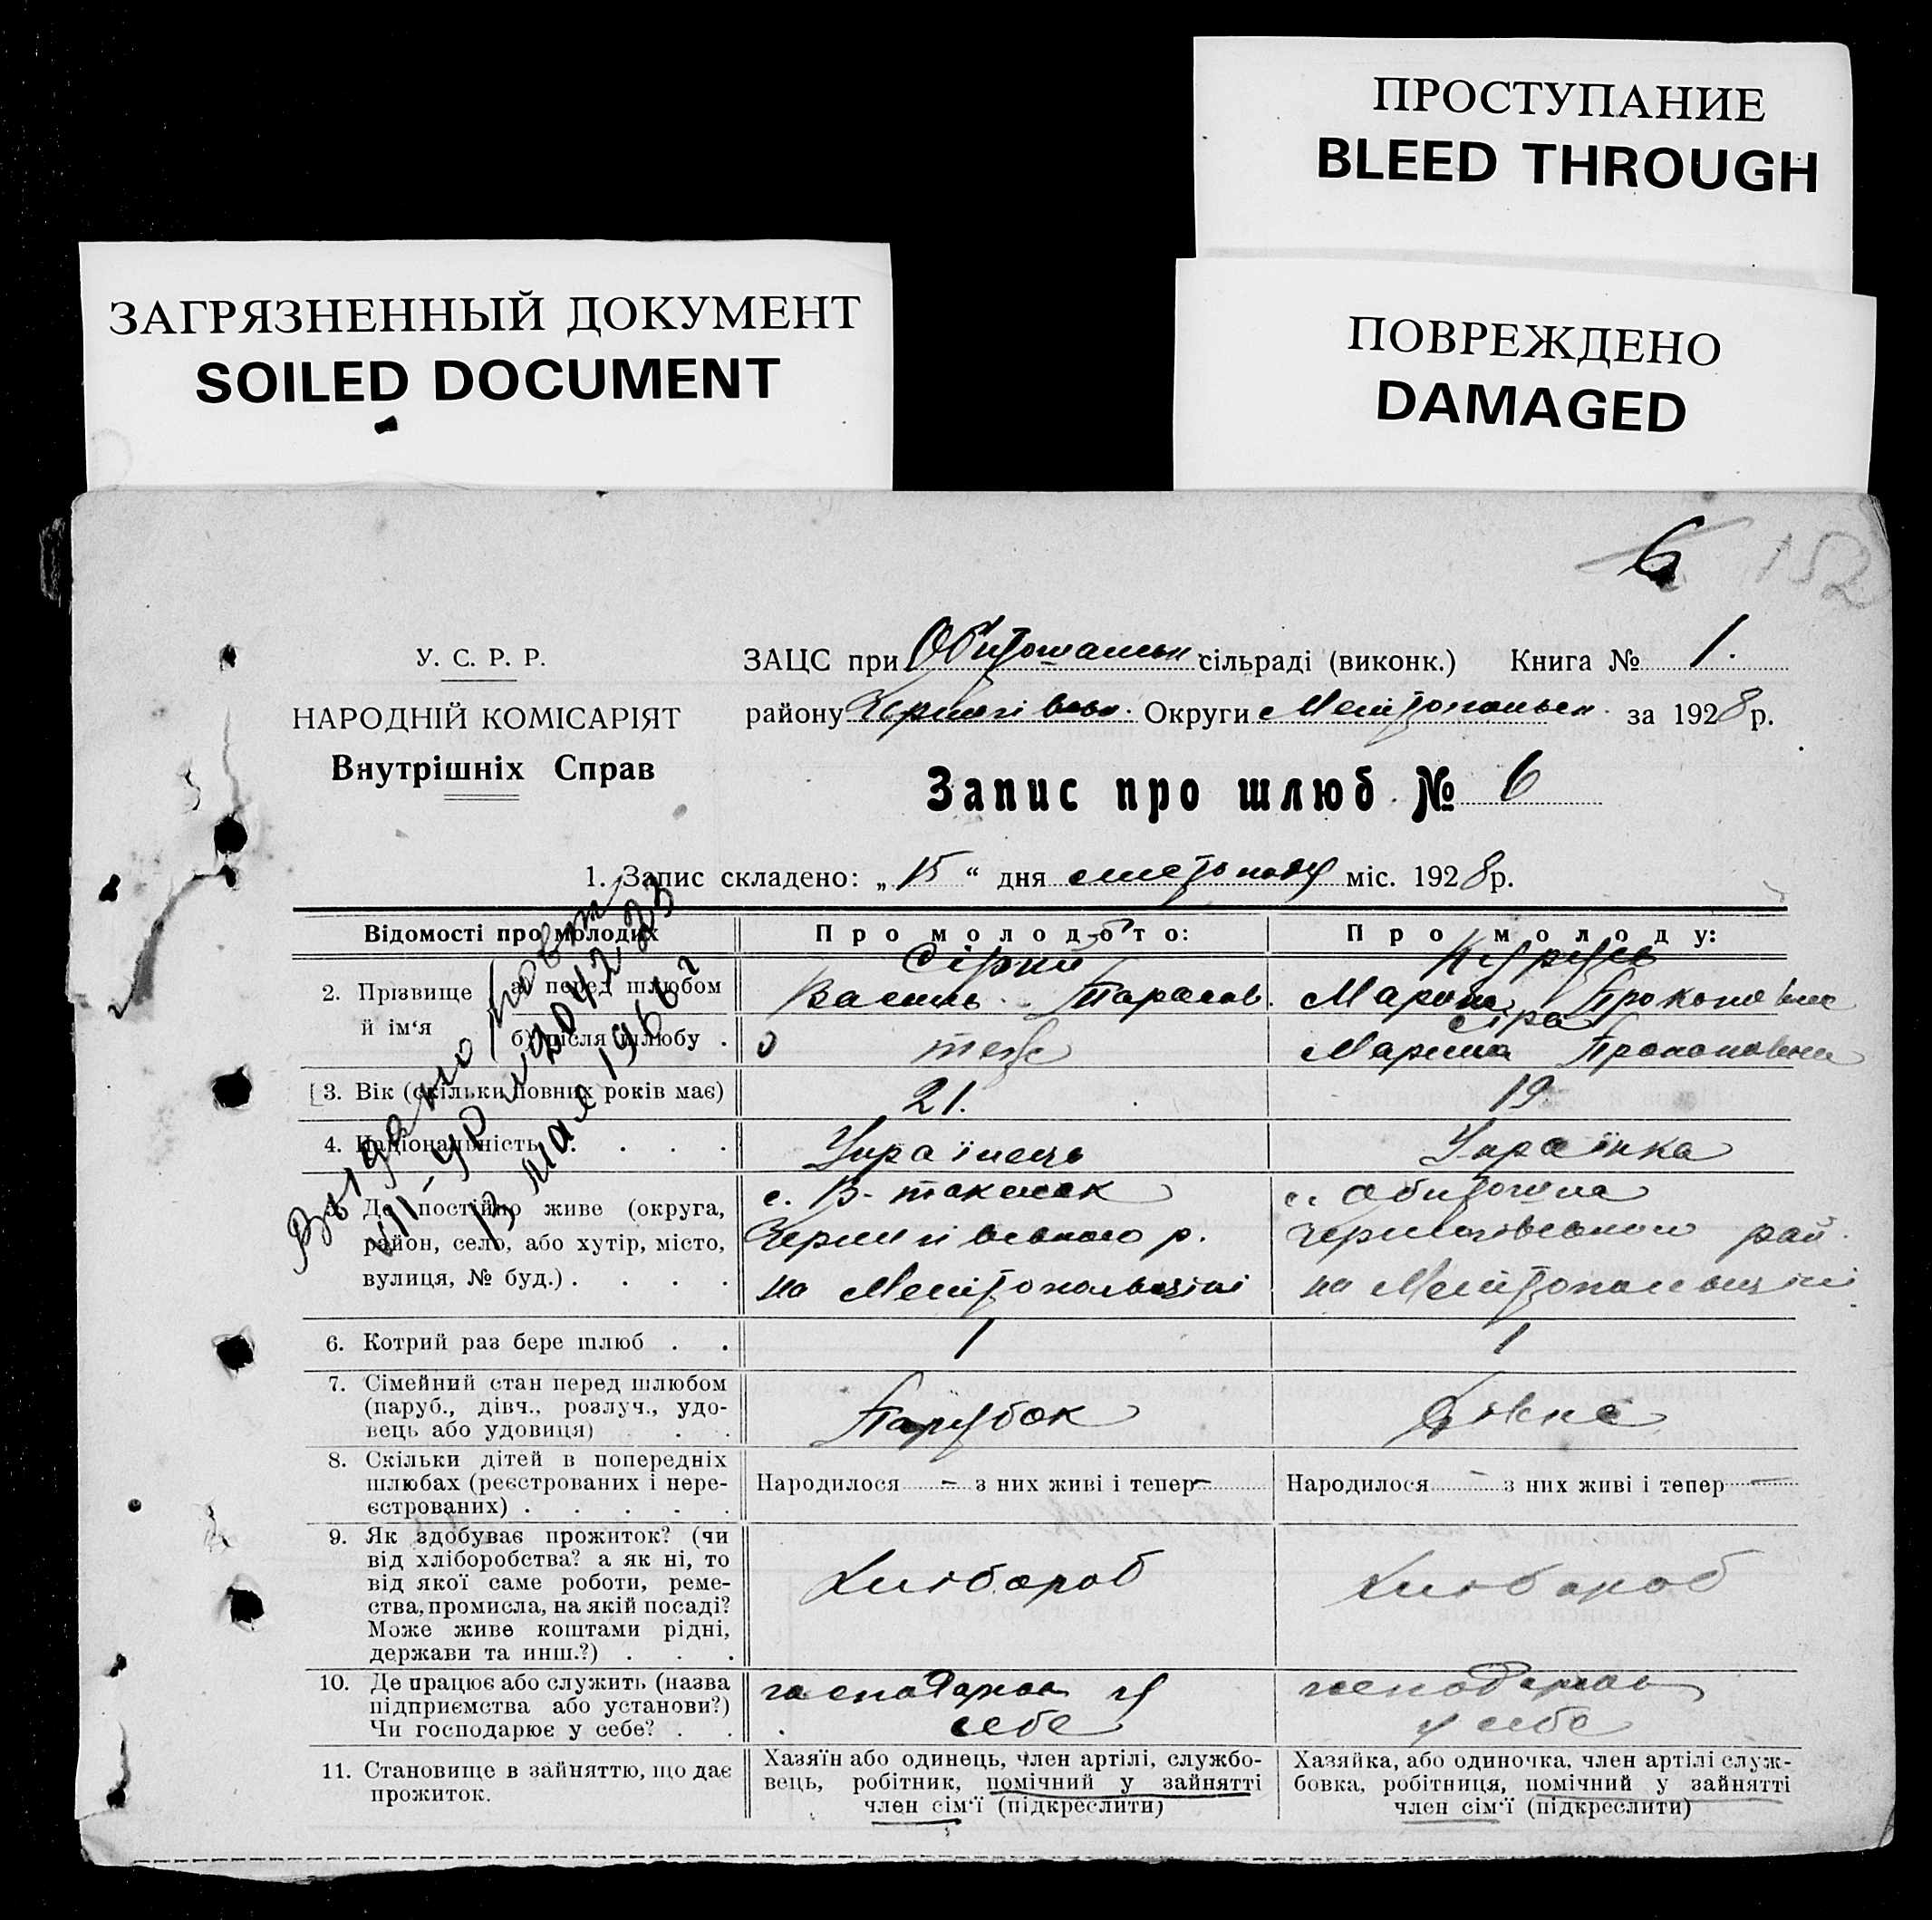 ПРОСТУПАНИЕ
BLEED THROUGH
ЗАГРЯЗНЕННЫЙ ДОКУМЕНТ
SOILED DOCUMENT
ПОВРЕЖДЕНО
DAMAGED
6 152
У. С. Р. Р.
НАРОДНІЙ КОМІСАРІЯТ
Внутрішніх Справ
ЗАЦС при Обитошанськ. сільраді (виконк.) Книга № 1.
району Чернігівськ. Округи Мелітопольськ. за 1928 р.
Запис про шлюб № 6
1. Запис складено: „15“ дня листопаду міс. 1928 р.
Відомості про молодих
Про молодого:
Про молоду:
2. Прізвище й ім‘я
а) перед шлюбом
Сірий
Василь Тарасов.
Марина Прокоповна
б) після шлюбу .
теж
Сіра
Марина Прокоповна
3. Вік (скільки повних років має)
21.
19
4. Національність . . . .
Українець
Українка
5. Де постійно живе (округа,
район, село, або хутір, місто,
вулиця, № буд.) . . . .
с. В-токмак
Чернігівського р.
на Мелітопольщині
с. Обитошна
Чернігівського рай.
на Мелітопольщині
6. Котрий раз бере шлюб . .
1
1
7. Сімейний стан перед шлюбом
(паруб., дівч., розлуч., удо-
вець або удовиця) . .
Парубок
Дівка
8. Скільки дітей в попередніх
шлюбах (реєстрованих і нере-
єстрованих) . . . . .
Народилося – з них живі і тепер –
Народилося – з них живі і тепер –
9. Як здобуває прожиток? (чи
від хліборобства? а як ні, то
від якої саме роботи, реме-
ства, промисла, на якій посаді?
Може живе коштами рідні,
держави та инш.?) . . .
Хлібороб
Хлібороб
10. Де працює або служить (назва
підприємства або установи?)
Чи господарює у себе? . .
господарює у
себе
господарює
у себе
11. Становище в зайняттю, що дає
прожиток.
Хазяїн або одинець, член артілі, службо-
вець, робітник, помічний у зайнятті
член сім‘ї (підкреслити)
Хазяйка, або одиночка, член артілі служ-
бовка, робітниця, помічний у зайнятті
член сім‘ї (підкреслити)
Выдано повт
13 мая 1966 г